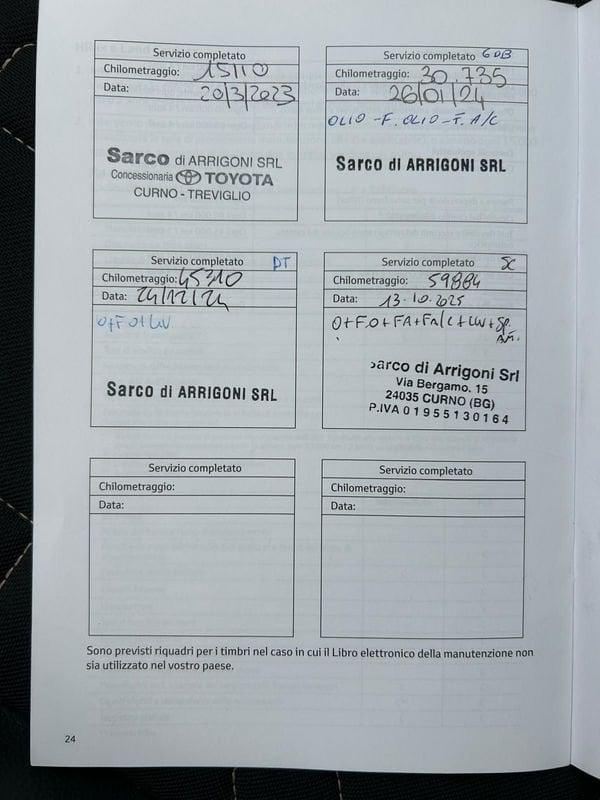 Servizio completato
Chilometraggio: 15110
Data: 20/3/2023
Sarco di ARRIGONI SRL
Concessionaria TOYOTA
CURNO - TREVIGLIO
Servizio completato
Chilometraggio: 30.735
Data: 26/01/24
OLIO - F. OLIO - F. A/C
Sarco di ARRIGONI SRL
Servizio completato DT
Chilometraggio: 45310
Data: 24/12/24
Sarco di ARRIGONI SRL
Servizio completato SC
Chilometraggio: 59884
Data: 13.10.2025
O+F.O+FA+FA/C+LW+Sp.
Sarco di Arrigoni Srl
Via Bergamo, 15
24035 CURNO (BG)
P.IVA 01955130164
Servizio completato
Chilometraggio:
Data:
Servizio completato
Chilometraggio:
Data:
Sono previsti riquadri per i timbri nel caso in cui il Libro elettronico della manutenzione non
sia utilizzato nel vostro paese.
24